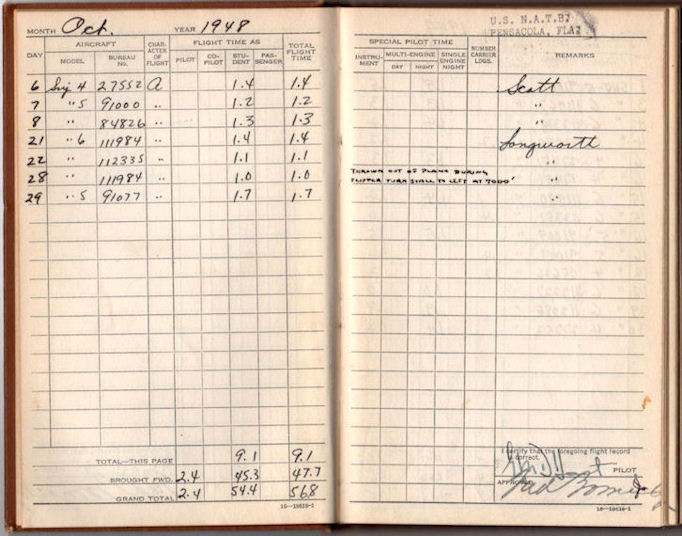 MONTH Oct. YEAR 1948
DAY AIRCRAFT CHAR-ACTER OF FLIGHT FLIGHT TIME AS TOTAL FLIGHT TIME
MODEL BUREAU NO. PILOT CO-PILOT STU-DENT PAS-SENGER
6 Snj 4 27552 A 1.4 1.4
7 " 5 91000 " 1.2 1.2
8 " 84826 " 1.3 1.3
21 " 6 111984 " 1.4 1.4
22 " 112335 " 1.1 1.1
28 " 111984 " 1.0 1.0
29 " 5 91077 " 1.7 1.7
TOTAL—THIS PAGE 9.1 9.1
BROUGHT FWD. 2.4 45.3 47.7
GRAND TOTAL 2.4 54.4 56.8
U.S. N.A.T.B.
PENSACOLA, FLA.
SPECIAL PILOT TIME NUMBER CARRIER LDGS. REMARKS
INSTRU-MENT MULTI-ENGINE SINGLE ENGINE NIGHT
DAY NIGHT
Scott
"
Longworth
"
THROWN OUT OF PLANE DURING "
FLIPPER TURN STALL TO LEFT AT 7000'
"
I certify that the foregoing flight record
is correct.
PILOT
APPROVED